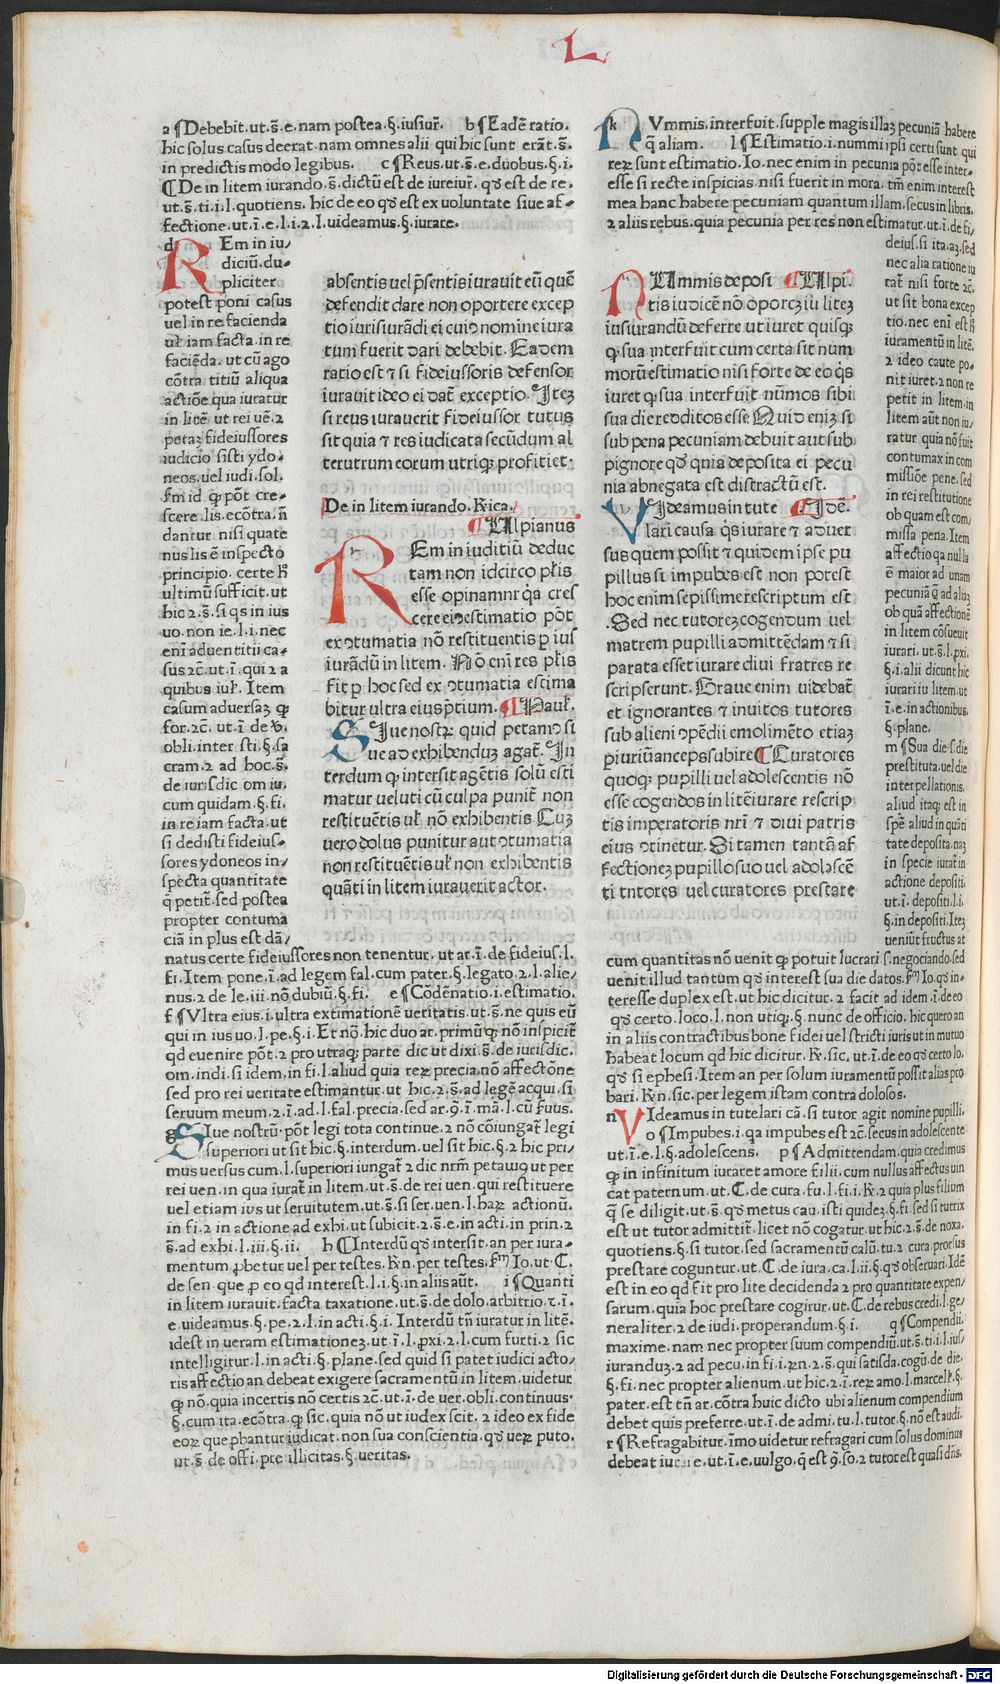 L
a ¶Debebit.ut.s̄.e.nam postea.§.iusiur̄. b ¶Eadē ratio.
hic solus casus deerat.nam omnes alii qui hic sunt erāt.s̄.
in predictis modo legibus. c ¶Reus.ut.s̄.e.duobus.§.i.
¶De in litem iurando.s̄.dictū est de iureiur̄. qđ est de re.
ut.s̄.ti.i.l.quotiens. hic de eo qđ est ex voluntate siue af-
fectione.ut.ī.e.l.i.2.l.uideamus.§.iurare.
d
REm in iu/
diciū.du-
pliciter
potest poni casus
uel in re facienda
uł iam facta.in re
faciēda.ut cū ago
cōtra titiū aliqua
actiōe qua iuratur
in litē ut rei uē.2
petaȝ fideiussores
iudicio sisti ydo-
neos.uel iudi.sol.
scere.lis.ecōtra.n̄
dantur.nisi quate
nus lis ē inspecto
principio.certe
ultimū sufficit.ut
hic 2.s̄.si qs in ius
uo.non ie.l.i.nec
enī aduentitii ca-
sus 2c̄.ut.ī.qui 2 a
quibus iuł. Item
casum aduersaȝ ꝙ
for.2c̄.ut.ī de v̄.
obli.inter sti.§.sa
cram.2 ad hoc.s̄.
de iurisdic om iu.
cum quidam.§.fi.
in re iam facta.ut
si dedisti fideius-
sores ydoneos in/
specta quantitate
q̄ petit̄.sed postea
propter contuma
ciā in plus est dā/
natus certe fideiussores non tenentur.ut ar.ī.de fideius.l.
fi.Item pone.ī.ad legem fal.cum pater.§.legato.2.l.alie-
nus.2 de le.iii.nō dubiū.§.fi. e ¶Cōdēnatio.i.estimatio.
f ¶Vltra eius.i.ultra extimationē ueritatis.ut.s̄.ne quis eū
qui in ius uo.l.pe.§.i.Et nō.hic duo ar.primū ꝙ nō inspicit̄
qđ euenire pōt.2 pro utraqȝ parte dic ut dixi.s̄.de iurisdic.
om.indi.si idem.in fi.l.aliud quia reȝ precia.nō affectōne
sed pro rei ueritate estimantur.ut hic.2.s̄.ad legē acqui.si
seruum meum.2.ī.ad.l.fal.precia.sed ar.9.ī.ma.l.cū fuus.
g SIue nostrū.pōt legi tota continue.2 nō cōiungat̄ legi
superiori ut sit hic.§.interdum.uel sit hic.§.2 hic pri-
mus versus cum.l.superiori iungat̄ 2 dic nr̄m petamꝰ ut per
rei uen.in qua iurat̄ in litem.ut.s̄.de rei uen.qui restituere
uel etiam ius ut seruitutem.ut.s̄.si ser.uen.l.haȝ actionū.
in fi.2 in actione ad exhi.ut subicit.2.s̄.e.in acti.in prin.2
s̄.ad exhi.l.iii.§.ii. h ¶Interdū qđ intersit.an per iura-
mentum ꝓbetur uel per testes. per testes. Io.ut.C.
de sen.que ꝓ eo qđ interest.l.i.§.in aliis aūt. i ¶Quanti
in litem iurauit.facta taxatione.ut.s̄.de dolo.arbitrio.2.ī.
e.uideamus.§.pe.2.l.in acti.§.i.Interdū tn̄ iuratur in litē.
idest in ueram estimationeȝ.ut.ī.l.ꝓxi.2.l.cum furti.2 sic
intelligitur.l.in acti.§.plane.sed quid si patet iudici acto/
ris affectio an debeat exigere sacramentū in litem.uidetur
ꝙ nō.quia incertis nō certis 2c̄.ut.ī.de uer.obli.continuus.
§.cum ita.ecōtra.ꝙ sic.quia nō ut iudex scit.2 ideo ex fide
eoȝ que ꝓbantur iudicat.non sua conscientia.qđ ueȝ puto.
ut.s̄.de offi.pre.illicitas.§.veritas.
absentis uel p̄sentis iurauit eū quē
defendit dare non oportere excep
tio iurisiurādi ei cuiꝰ nomine iura
tum fuerit dari debebit. Eadem
ratio est 2 si fideiussoris defensor
iurauit ideo ei dat̄ exceptio. Iteȝ
si reus iurauerit fideiussor tutus
sit quia 2 res iudicata secūdum al
terutrum eorum utriqȝ profitiet.
De in litem iurando. Rica.
¶Ulpianus
REm in iuditiū deduc
tam non idcirco płis
esse opinamnr qa cres
cere eiꝰ estimatio pōt
ex ꝯtumatia nō restituentis p ius
iurādū in litem. Nō eni res płis
fit p hoc sed ex ꝯtumatia estima
bitur ultra eius p̄tium. ¶Pauł.
SIue nostȝ quid petamꝰ si
ue ad exhibenduȝ agat̄. In
terdum ꝙ intersit agētis solū esti
matur ueluti cū culpa punit̄ non
restituētis uł nō exhibentis Cuȝ
uero dolus punitur aut ꝯtumatia
non restituētis uł non exhibentis
quāti in litem iurauerit actor.
k NVmmis.interfuit.supple magis illaȝ pecuniā habere
q̄ aliam. l ¶Estimatio.i.nummi ipsi certi sunt qui
reȝ sunt estimatio.Io.nec enim in pecunia pōt esse inter-
esse si recte inspicias.nisi fuerit in mora.tm̄ enim interest
mea hanc habere pecuniam quantum illam.secus in libris.
2 aliis rebus.quia pecunia per res non estimatur.ut.ī.de fi/
deius.si ita.aȝ.sed
nec alia ratione iu
rat̄ nisi forte 2c̄.
ut sit bona excep
tio.nec enī est
iuramentū in litē.
2 ideo caute po-
nit iuret.2 non re
petit in litem.in
litem aūt non iu/
ratur quia nō fuit
contumax in com
missiōe pene.sed
in rei restitutione
ob quam est com/
missa pena.Item
affectio qa nulla
ē maior ad unam
pecuniā q̄ ad aliaȝ
ob quā affectionē
in litem cōsueuit
iurari.ut.s̄.l.pxi.
§.i.alii dicunt hic
iurari iu litem.ut
ī.e.in actionibus.
§.plane.
m ¶Sua die.s.die
prestituta.uel die
interpellationis.
aliud itaqȝ est in
spē aliud in quāti
tate deposita.naȝ
in specie iurat̄ in
actione depositi.
ut.ī.depositi.l.i.
§.in depositi.Iteȝ
ueniūt fructus at
cum quantitas nō uenit ꝙ potuit lucrari s.negociando.sed
uenit illud tantum qđ interest sua die datos. Io.qđ in-
teresse duplex est.ut hic dicitur.2 facit ad idem.ī.de eo
qđ certo.loco.l.non utiqȝ.§.nunc de officio.hic quero an
in aliis contractibus bone fidei uel stricti iuris ut in mutuo
habeat locum qđ hic dicitur. sic.ut.ī.de eo qđ certo lo.
qđ si ephesi.Item an per solum iuramentū possit alias pro
bari. n.sic.per legem istam contra dolosos.
n VIdeamus in tutelari cā.si tutor agit nomine pupilli.
o ¶Impubes.i.qa impubes est 2c̄.secus in adolescente
ut.ī.e.l.§.adolescens. p ¶Admittendam.quia credimus
ꝙ in infinitum iuraret amore filii.cum nullus affectus uin
cat paternum.ut.C.de cura.fu.l.fi.i. 2 quia plus filium
q̄ se diligit.ut.s̄.qđ metus cau.isti quideȝ.§.fi.sed si tutrix
est ut tutor admittit̄.licet nō cogatur.ut hic.2.s̄.de noxa.
quotiens.§.si tutor.sed sacramentū calū.tu.2 cura.prorsus
prestare coguntur.ut.C.de iura.ca.l.ii.§.qđ obseruari.Idē
est in eo qđ fit pro lite decidenda 2 pro quantitate expen/
sarum.quia hoc prestare cogitur.ut.C.de rebus credi.l.ge/
neraliter.2 de iudi.properandum.§.i. q ¶Compendii.
maxime.nam nec propter suum compendiū.ut.s̄.ti.i.l.ius/
iuranduȝ.2 ad pecu.in fi.i.2.s̄.qui satisda.cogū.de die.
§.fi.nec propter alienum.ut hic.2.ī.reȝ amo.l.marcell.§.
pater.est tn̄ ar.cōtra huic dicto ubi alienum compendium
debet quis preferre.ut.ī.de admi.tu.l.tutor.§.nō est audi.
r ¶Refragabitur.īmo uidetur refragari cum solus dominus
debeat iurare.ut.ī.e.uulgo.q̄ est 9.so.2 tutor est quasi dn̄s.
NUmmis deposi ¶Ulpi.
tis iudicē nō oporcȝ iu liteȝ
iusiurandū deferre ut iuret quisqȝ
ꝙ sua interfuit cum certa sit num
morū estimatio nisi forte de eo qs
iuret ꝙ sua interfuit nūmos sibi
sua die redditos esse Quid eniȝ si
sub pena pecuniam debuit aut sub
pignore qđ qnia deposita ei pecu
nia abnegata est distractū est.
VIdeamus in tute ¶Idē.
lari causa qs iurare 2 aduer
sus quem possit 2 quidem ipse pu
pillus si impubes est non potest
hoc enim sepissime rescriptum est
.Sed nec tutoreȝ cogendum uel
matrem pupilli admittēdam 2 si
parata esset iurare diui fratres re
scripserunt. Graue enim uidebat̄
et ignorantes 2 inuitos tutores
sub alieni ꝯpēdii emolimēto etiaȝ
piuriū anceps subire ¶Curatores
quoqȝ pupilli uel adolescentis nō
esse cogendos in litē iurare rescrip
tis imperatoris nr̄i 2 diui patris
eius ꝯtinetur. Si tamen tantā af
fectionez pupillo suo uel adolascē
ti tntores uel curatores prestare
Digitalisierung gefördert durch die Deutsche Forschungsgemeinschaft - DFG